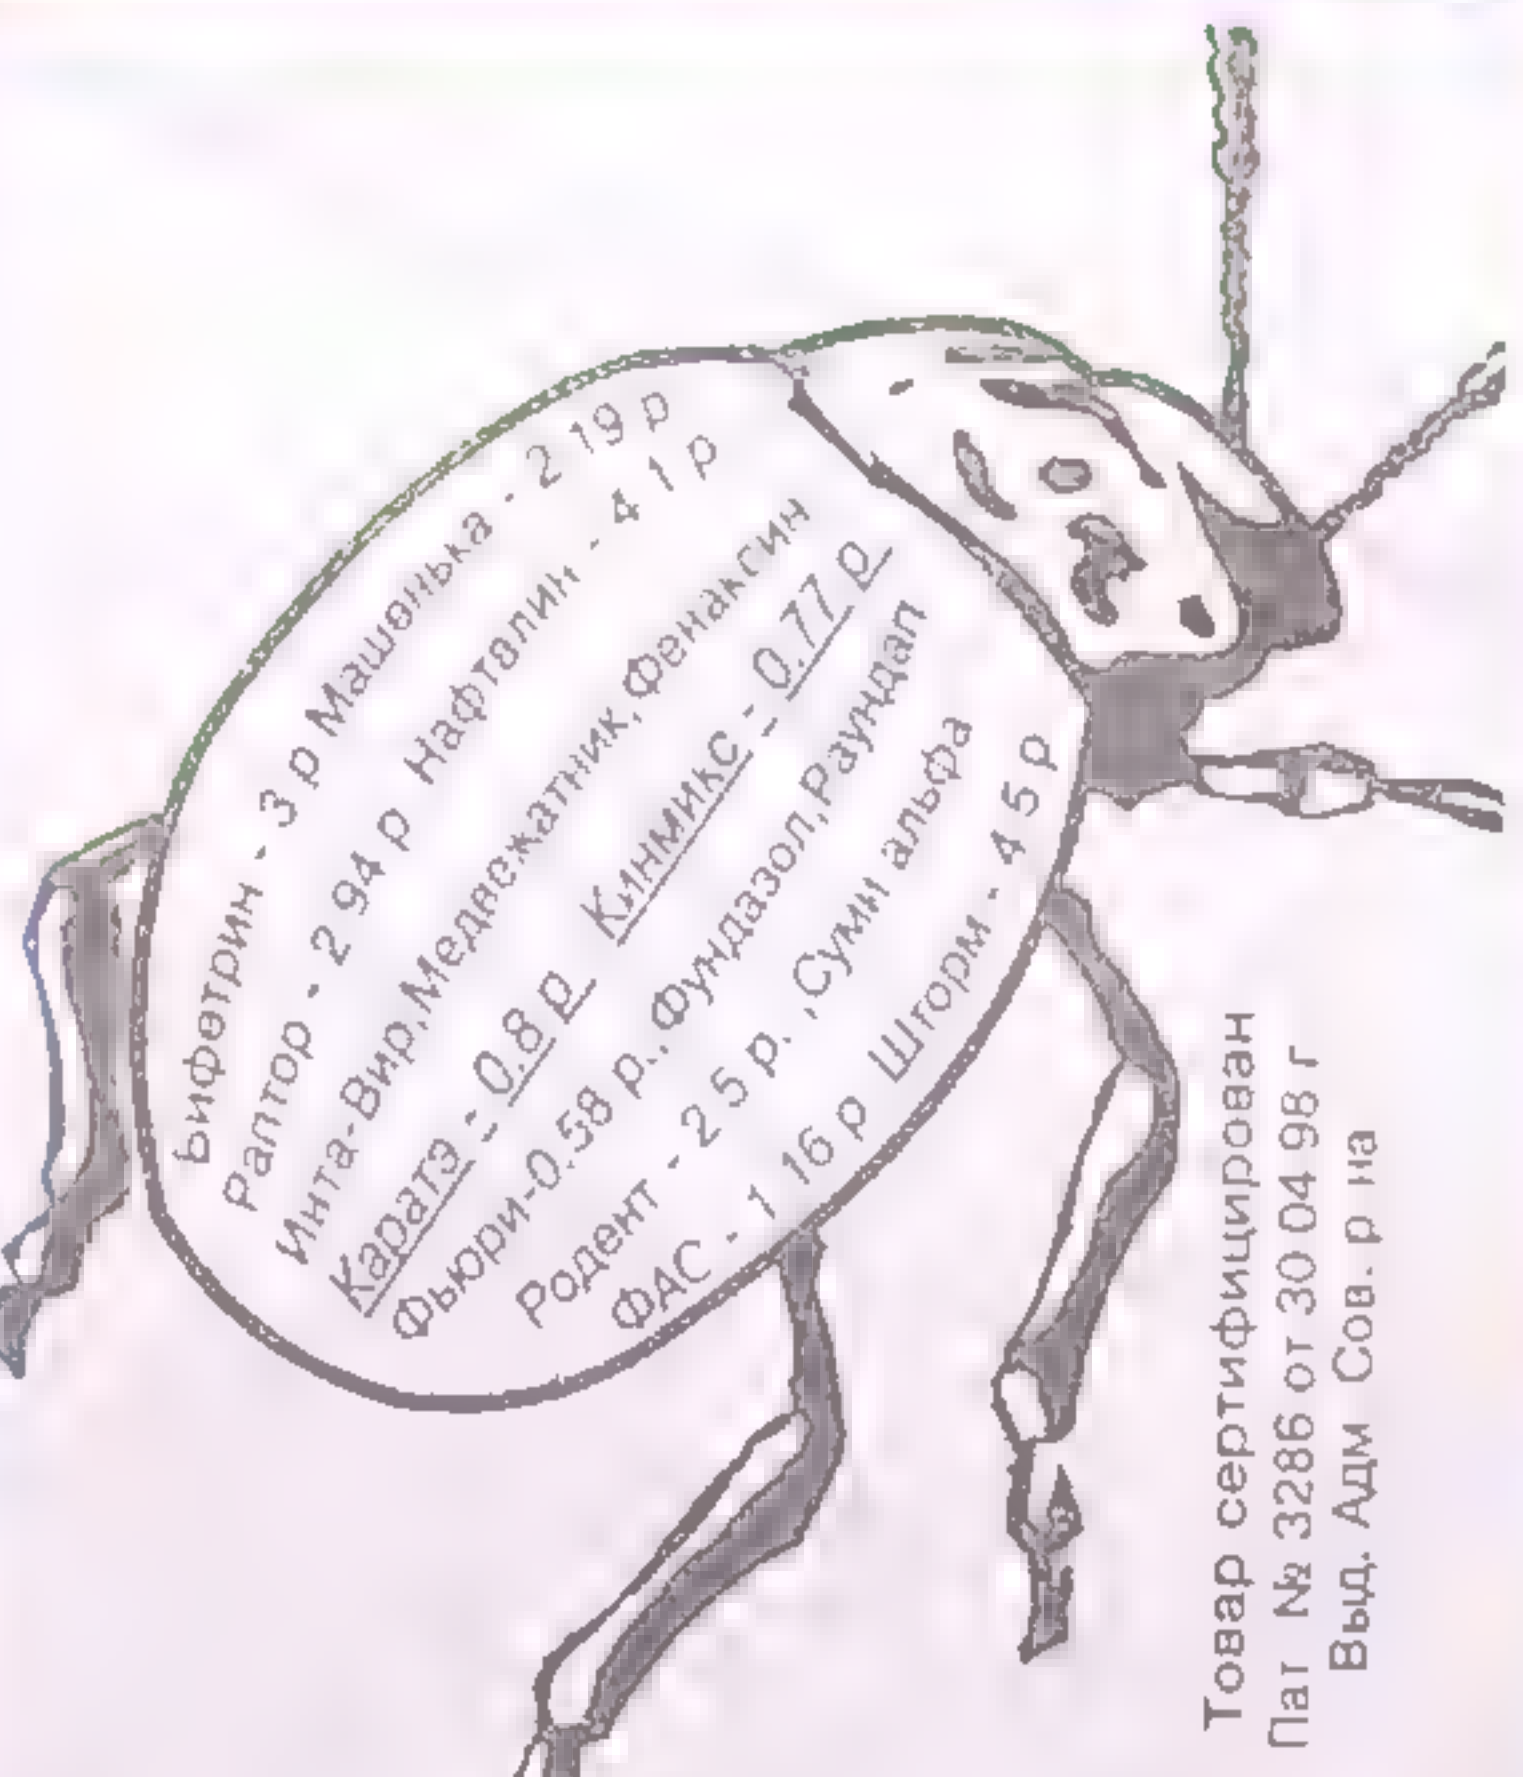 Бифетрин - 3 р Машенька - 2 19 р
Раптор - 2 94 р Нафтолин - 4 1 р
Инта-Вир,Медвежатник,Фенаксин
Каратэ - 0.8 р Кинмикс - 0.77 р
Фьюри-0.58 р.,Фундазол,Раундап
Родент - 2 5 р. ,Суми альфа
ФАС - 1 16 р Шторм - 4 5 р
Товар сертифицирован
Пат № 3286 от 30 04 98 г
Выд. Адм Сов. р на